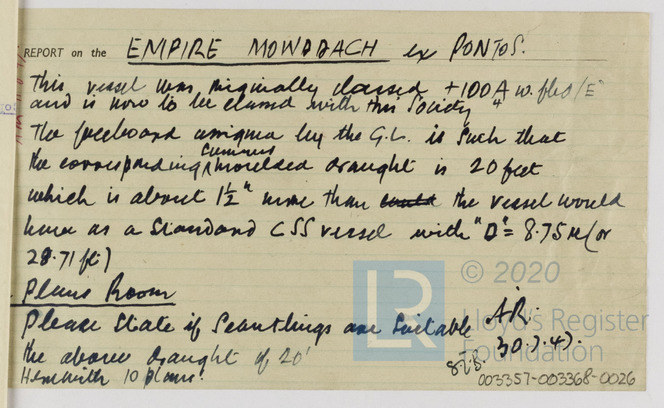 REPORT on the EMPIRE MOWDDACH ex PONTOS.
This vessel was originally classed +100A w. fbd /"E"
and is now to be classed with this Society
The freeboard assigned by the G.L. is such that
the corresponding summer moulded draught is 20 feet
which is about 1½" more than could the vessel would
have as a Standard CSS vessel with "D" = 8.75 M (or
28.71 ft)
Plans Room
Please State if Scantlings are Suitable
the above draught of 20'
Herewith 10 plans.
A.R.
30.7.47.
© 2020
LR
Lloyd's Register
Foundation
003357-003368-0026